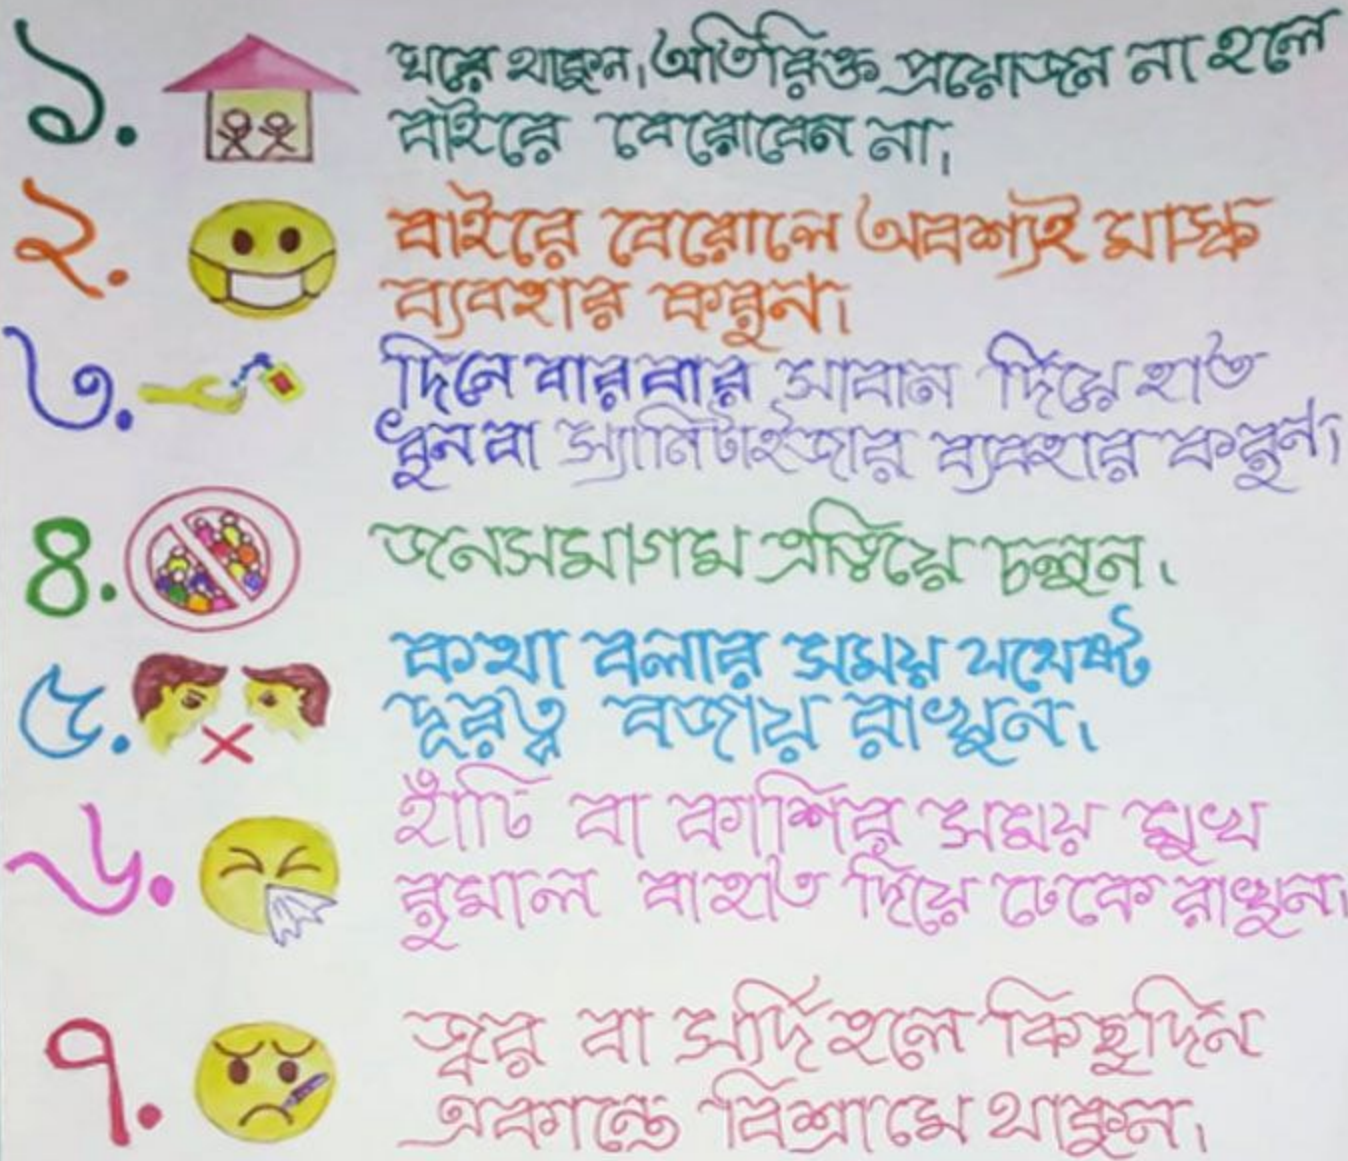 ১. ঘরে থাকুন। অতিরিক্ত প্রয়োজন না হলে
বাইরে বেরোবেন না।
২. বাইরে বেরোলে অবশ্যই মাস্ক
ব্যবহার করুন।
৩. দিনে বারবার সাবান দিয়ে হাত
ধুন বা স্যানিটাইজার ব্যবহার করুন।
৪. জনসমাগম এড়িয়ে চলুন।
৫. কথা বলার সময় যথেষ্ট
দূরত্ব বজায় রাখুন।
৬. হাঁচি বা কাশির সময় মুখ
রুমাল বা হাত দিয়ে ঢেকে রাখুন।
৭. জ্বর বা সর্দি হলে কিছুদিন
একান্তে বিশ্রামে থাকুন।